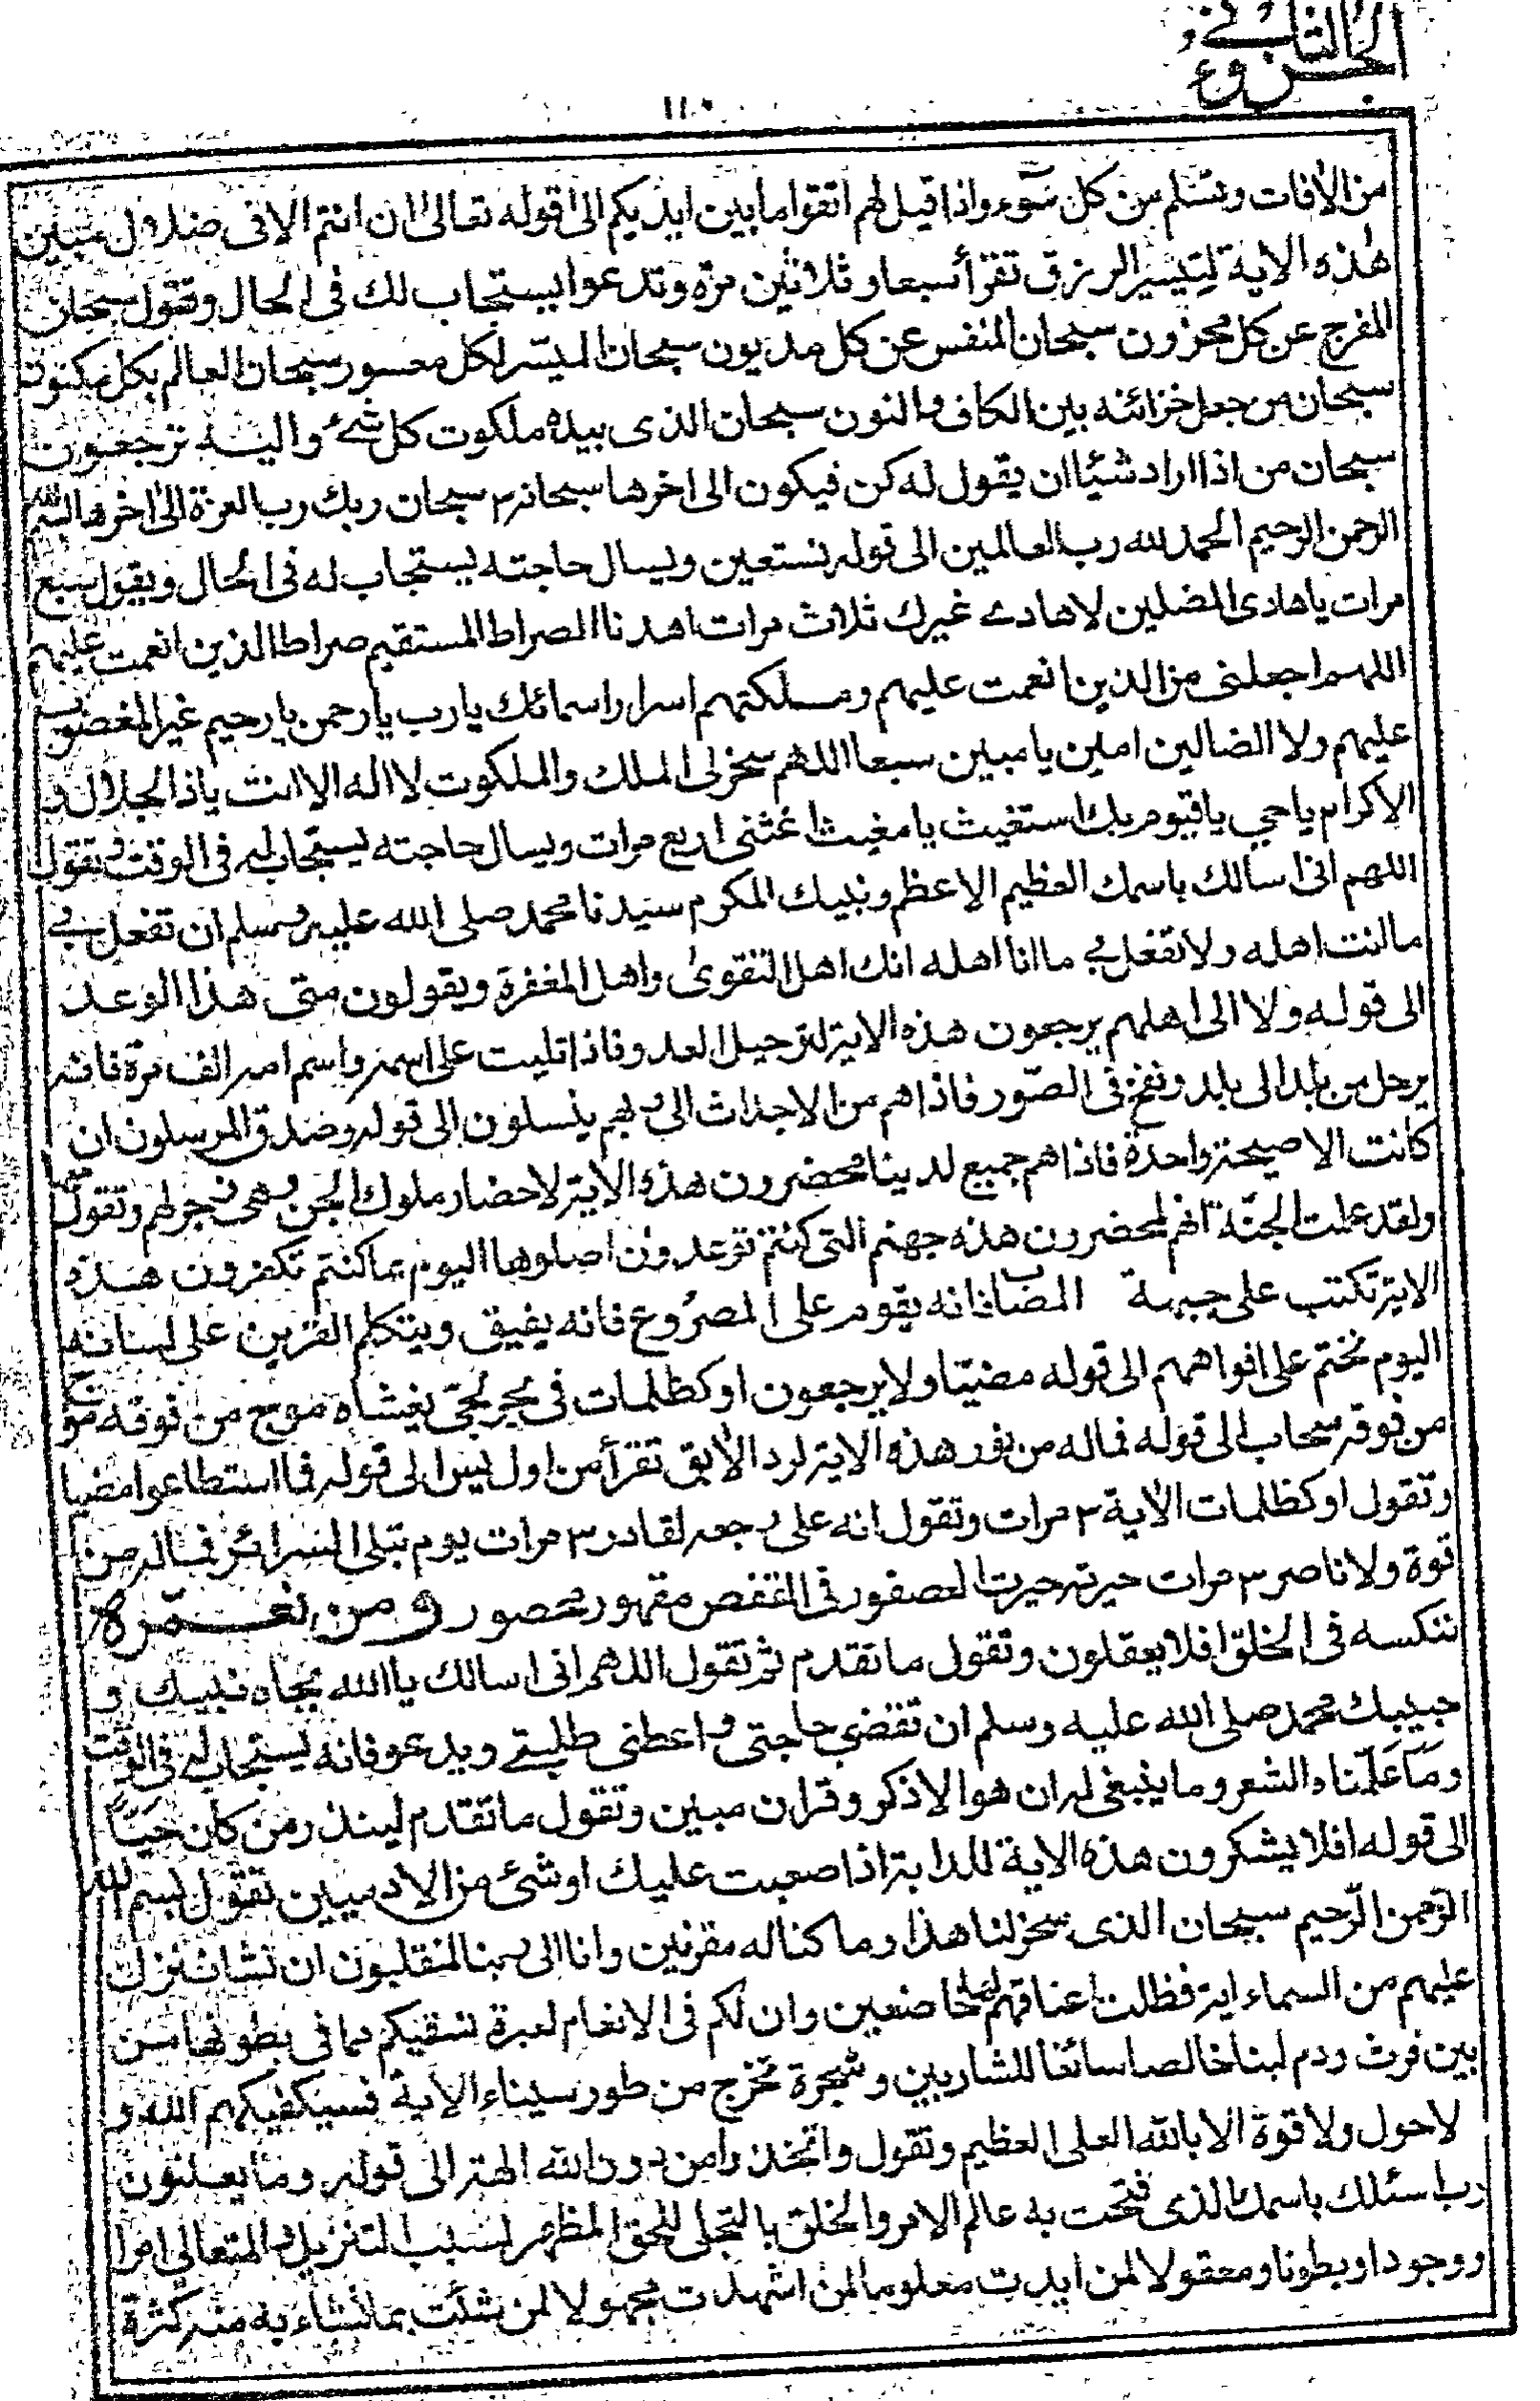 الجزء الثاني
١١٠
من الافات وتسلم من كل سوء واذا قيل لهم اتقوا ما بين ايديكم الى قوله تعالى ان انتم الا فى ضلال مبين
هذه الاية لتيسير الرزق تقرأ سبعا وثلاثين مرة وتدعوا يستجاب لك فى الحال وتقول سبحان
المفرج عن كل محزون سبحان المنفس عن كل مديون سبحان الميسر لكل معسور سبحان العالم بكل مكنون
سبحان من جعل خزائنه بين الكاف والنون سبحان الذى بيده ملكوت كل شئ واليه ترجعون
سبحان من اذا اراد شيئا ان يقول له كن فيكون الى اخرها سبحانه ٣ سبحان ربك رب العزة الى اخرها بسم الله
الرحمن الرحيم الحمد لله رب العالمين الى قوله نستعين ويسال حاجته يستجاب له فى الحال ويقول سبع
مرات يا هادى المضلين لا هادے غيرك ثلاث مرات اهدنا الصراط المستقيم صراط الذين انعمت عليهم
اللهم اجعلنى من الذين انعمت عليهم ومسلكتهم اسرار اسمائك يا رب يا رحمن يا رحيم غير المغضوب
عليهم ولا الضالين امين يا مبين سبعا اللهم سخر لى الملك والملكوت لا اله الا انت يا ذا الجلال و
الاكرام يا حي يا قيوم بك استغيث يا مغيث اغثنى اربع مرات ويسال حاجته يستجاب له فى الوقت وتقول
اللهم انى اسالك باسمك العظيم الاعظم ونبيك المكرم سيدنا محمد صلى الله عليه وسلم ان تفعل بے
ما انت اهله ولا تفعل بے ما انا اهله انك اهل التقوى واهل المغفرة ويقولون متى هذا الوعد
الى قوله ولا الى اهلهم يرجعون هذه الاية لترحيل العدو فاذا تليت على اسمه واسم امه الف مرة فانه
يرحل من بلد الى بلد ونفخ فى الصور فاذا هم من الاجداث الى ربهم ينسلون الى قوله وصدق المرسلون ان
كانت الا صيحة واحدة فاذا هم جميع لدينا محضرون هذه الاية لاحضار ملوك الجن وهى زجر لهم وتقول
ولقد علمت الجنة انهم لمحضرون هذه جهنم التى كنتم توعدون اصلوها اليوم بما كنتم تكفرون هذه
الاية تكتب على جبهة المصاب فانه يقوم على المصروع فانه يفيق ويتكلم القرين على لسانه
اليوم نختم على افواههم الى قوله مضيا ولا يرجعون او كظلمات فى بحر لجى يغشاه موج من فوقه موج
من فوقه سحاب الى قوله فما له من نور هذه الاية لرد الابق تقرأ من اول يس الى قوله فما استطاعوا مضيا
وتقول او كظلمات الاية ٣ مرات وتقول انه على رجعه لقادر ٣ مرات يوم تبلى السرائر فما له من
قوة ولا ناصر ٣ مرات حيرته حيرت العصفور فى القفص مقهور محصور ومن نعمره
ننكسه فى الخلق افلا يعقلون وتقول ما تقدم ثم تقول اللهم انى اسالك يا الله بجاه نبيك و
حبيبك محمد صلى الله عليه وسلم ان تقضي حاجتى واعطنى طلبتے ويدعو فانه يستجاب له فى الوقت
وما علمناه الشعر وما ينبغى له ان هو الا ذكر وقران مبين وتقول ما تقدم لينذر من كان حيا
الى قوله افلا يشكرون هذه الاية للدابة اذا صعبت عليك او شئ من الادميين تقول بسم الله
الرحمن الرحيم سبحان الذى سخر لنا هذا وما كنا له مقرنين وانا الى ربنا لمنقلبون ان نشا ننزل
عليهم من السماء اية فظلت اعناقهم لها خاضعين وان لكم فى الانعام لعبرة نسقيكم مما فى بطونها من
بين فرث ودم لبنا خالصا سائغا للشاربين وشجرة تخرج من طور سيناء الاية فسيكفيكهم الله و
لا حول ولا قوة الا بالله العلى العظيم وتقول واتخذوا من دون الله الهة الى قوله وما يعلنون
رب اسئلك باسمك الذى فتحت به عالم الامر والخلق بالتجلى للحق المظهر لسبب التنزيل المتعالى امرا
ووجودا وبطونا ومعقولا لمن ابديت معلوما لمن اشهدت مجهولا لمن شئت بما تشاء به منه كثرة